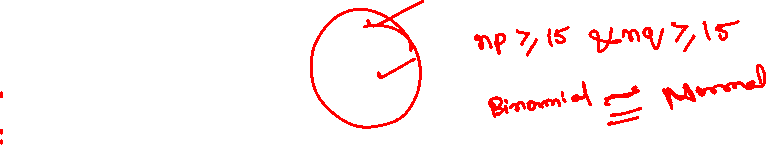 np ≥ 15 & nq ≥ 15
Binomial ≃ Normal